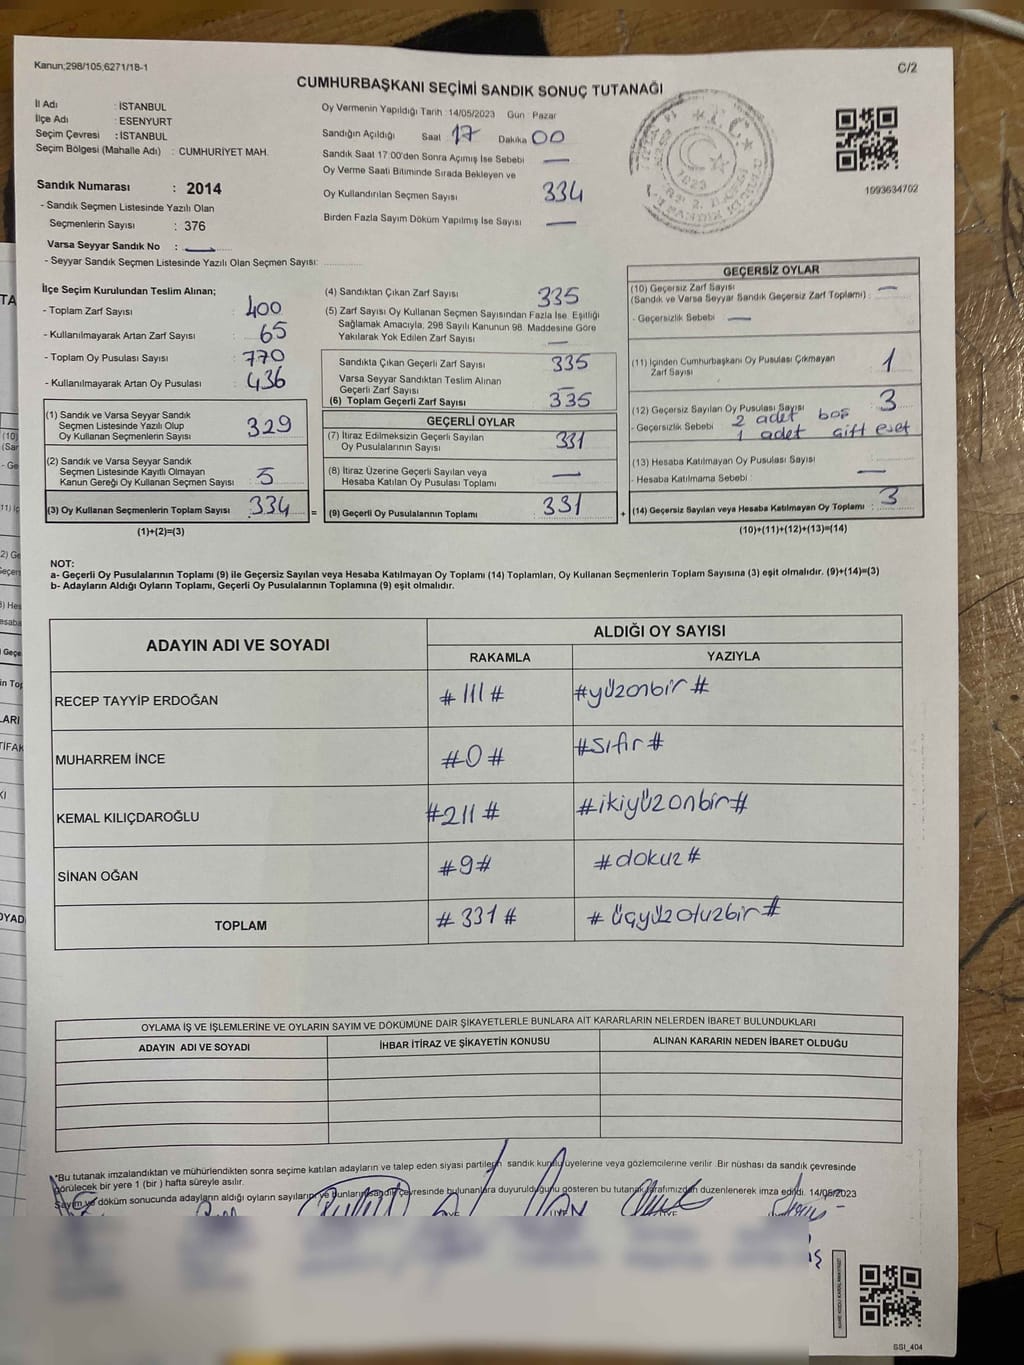 Kanun;298/105;6271/18-1
C/2
CUMHURBAŞKANI SEÇİMİ SANDIK SONUÇ TUTANAĞI
İl Adı : İSTANBUL
İlçe Adı : ESENYURT
Seçim Çevresi : İSTANBUL
Seçim Bölgesi (Mahalle Adı) : CUMHURİYET MAH.
Sandık Numarası : 2014
- Sandık Seçmen Listesinde Yazılı Olan
Seçmenlerin Sayısı : 376
Varsa Seyyar Sandık No : —
- Seyyar Sandık Seçmen Listesinde Yazılı Olan Seçmen Sayısı:
Oy Vermenin Yapıldığı Tarih :14/05/2023 Gün Pazar
Sandığın Açıldığı Saat 17 Dakika 00
Sandık Saat 17:00'den Sonra Açımış İse Sebebi —
Oy Verme Saati Bitiminde Sırada Bekleyen ve
Oy Kullandırılan Seçmen Sayısı 334
Birden Fazla Sayım Döküm Yapılmış İse Sayısı —
1093634702
İlçe Seçim Kurulundan Teslim Alınan;
- Toplam Zarf Sayısı : 400
- Kullanılmayarak Artan Zarf Sayısı : 65
- Toplam Oy Pusulası Sayısı : 770
- Kullanılmayarak Artan Oy Pusulası : 436
(1) Sandık ve Varsa Seyyar Sandık
Seçmen Listesinde Yazılı Olup
Oy Kullanan Seçmenlerin Sayısı : 329
(2) Sandık ve Varsa Seyyar Sandık
Seçmen Listesinde Kayıtlı Olmayan
Kanun Gereği Oy Kullanan Seçmen Sayısı : 5
(3) Oy Kullanan Seçmenlerin Toplam Sayısı : 334
(1)+(2)=(3)
(4) Sandıktan Çıkan Zarf Sayısı 335
(5) Zarf Sayısı Oy Kullanan Seçmen Sayısından Fazla İse, Eşitliği
Sağlamak Amacıyla, 298 Sayılı Kanunun 98. Maddesine Göre
Yakılarak Yok Edilen Zarf Sayısı —
Sandıkta Çıkan Geçerli Zarf Sayısı 335
Varsa Seyyar Sandıktan Teslim Alınan
Geçerli Zarf Sayısı —
(6) Toplam Geçerli Zarf Sayısı 335
GEÇERLİ OYLAR
(7) İtiraz Edilmeksizin Geçerli Sayılan
Oy Pusulasının Sayısı 331
(8) İtiraz Üzerine Geçerli Sayılan veya
Hesaba Katılan Oy Pusulası Toplamı —
= (9) Geçerli Oy Pusulalarının Toplamı 331
GEÇERSİZ OYLAR
(10) Geçersiz Zarf Sayısı
(Sandık ve Varsa Seyyar Sandık Geçersiz Zarf Toplamı) : —
- Geçersizlik Sebebi : —
(11) İçinden Cumhurbaşkanı Oy Pusulası Çıkmayan
Zarf Sayısı 1
(12) Geçersiz Sayılan Oy Pusulası Sayısı 3
- Geçersizlik Sebebi : 2 adet boş
1 adet çift evet
(13) Hesaba Katılmayan Oy Pusulası Sayısı
- Hesaba Katılmama Sebebi : —
+ (14) Geçersiz Sayılan veya Hesaba Katılmayan Oy Toplamı : 3
(10)+(11)+(12)+(13)=(14)
NOT:
a- Geçerli Oy Pusulalarının Toplamı (9) ile Geçersiz Sayılan veya Hesaba Katılmayan Oy Toplamı (14) Toplamları, Oy Kullanan Seçmenlerin Toplam Sayısına (3) eşit olmalıdır. (9)+(14)=(3)
b- Adayların Aldığı Oyların Toplamı, Geçerli Oy Pusulalarının Toplamına (9) eşit olmalıdır.
ADAYIN ADI VE SOYADI ALDIĞI OY SAYISI
RAKAMLA YAZIYLA
RECEP TAYYİP ERDOĞAN #111# #yüzonbir#
MUHARREM İNCE #0# #sıfır#
KEMAL KILIÇDAROĞLU #211# #ikiyüzonbir#
SİNAN OĞAN #9# #dokuz#
TOPLAM #331# #üçyüzotuzbir#
OYLAMA İŞ VE İŞLEMLERİNE VE OYLARIN SAYIM VE DÖKÜMÜNE DAİR ŞİKAYETLERLE BUNLARA AİT KARARLARIN NELERDEN İBARET BULUNDUKLARI
ADAYIN ADI VE SOYADI İHBAR İTİRAZ VE ŞİKAYETİN KONUSU ALINAN KARARIN NEDEN İBARET OLDUĞU
*Bu tutanak imzalandıktan ve mühürlendikten sonra seçime katılan adayların ve talep eden siyasi partilerin sandık kurulu üyelerine veya gözlemcilerine verilir .Bir nüshası da sandık çevresinde
görülecek bir yere 1 (bir ) hafta süreyle asılır.
Sayım ve döküm sonucunda adayların aldığı oyların sayılarını ve bunların sandık çevresinde bulunanlara duyurulduğunu gösteren bu tutanak tarafımızdan düzenlenerek imza edildi. 14/05/2023
SSI_404